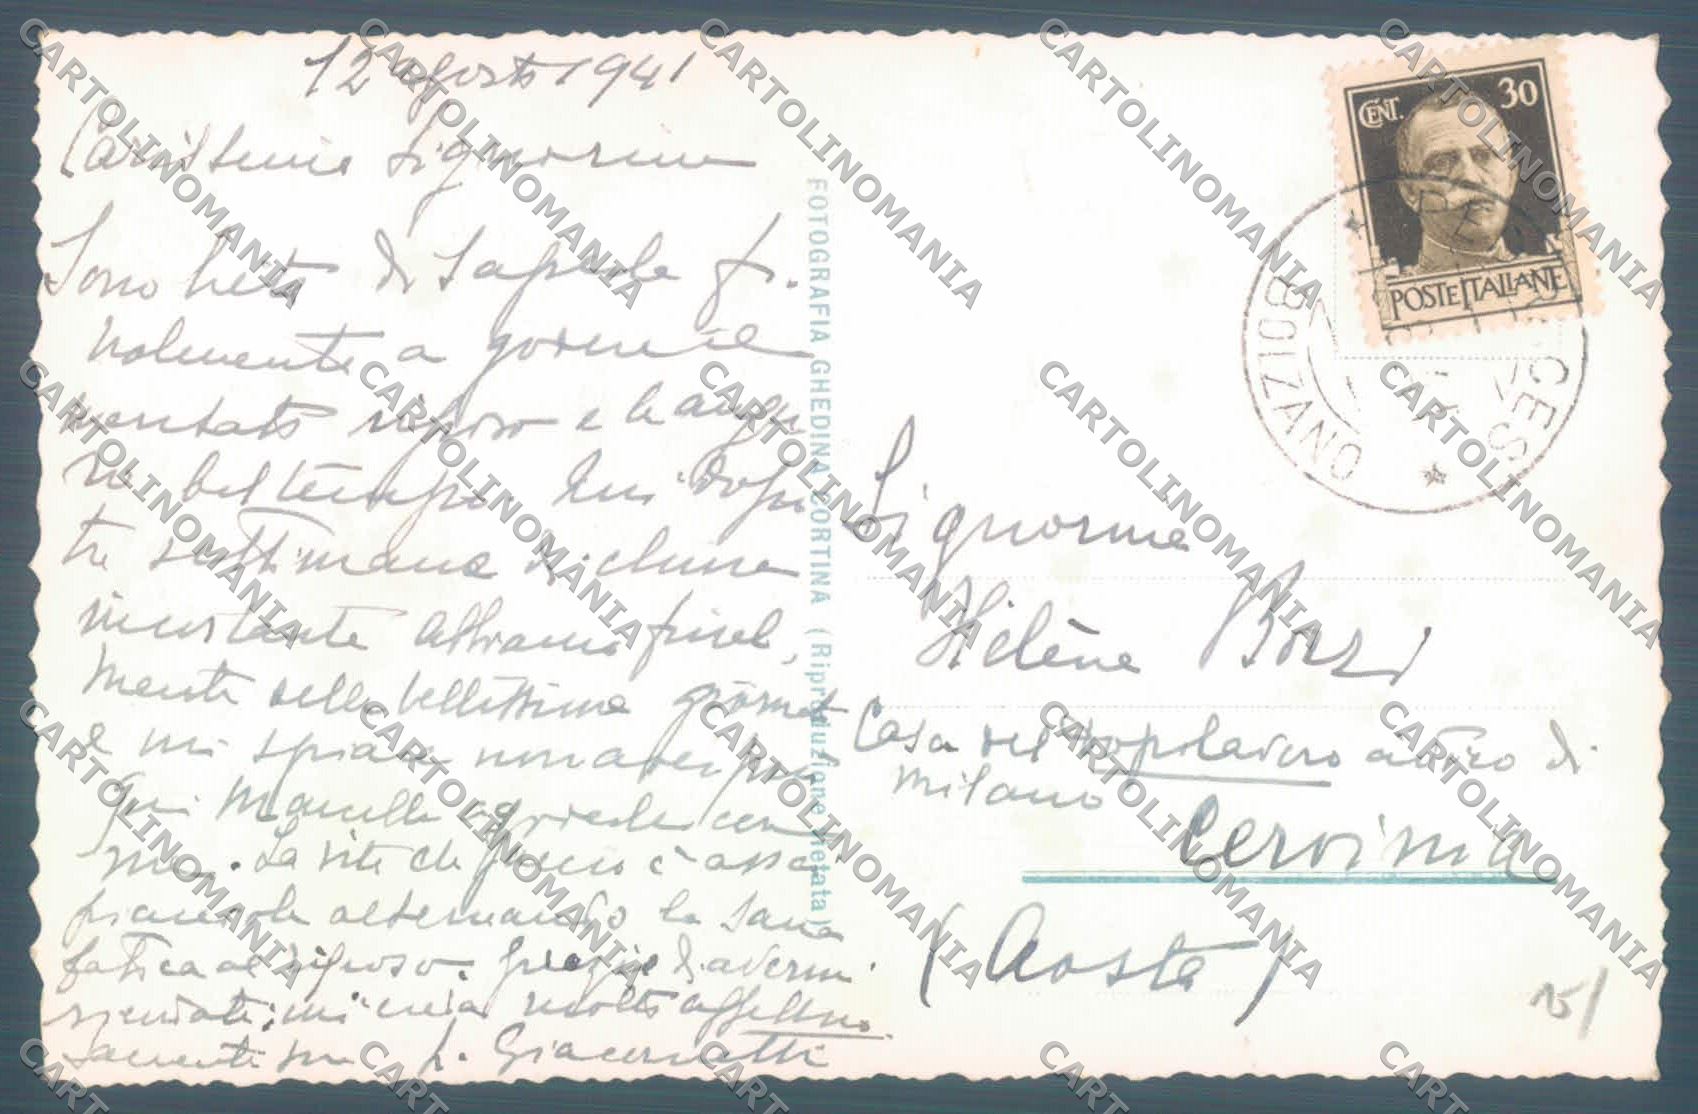 12 agosto 1941
Carissima Signorina
Sono lieta di saperla fi-
nalmente a godere il
meritato riposo e le augu
ro bel tempo. Qui dopo
tre settimane di clima
incostante abbiamo final,
mente delle bellissime giornate
e mi spiace non aver più
qui Marcella a goderle con
me. La vita che faccio è assai
piacevole alternando la sana
fatica al riposo. Grazie d'avermi
ricordata; mi creda molto affettuo
samente sua L. Giacometti
FOTOGRAFIA GHEDINA CORTINA (Riproduzione vietata)
CENT. 30
POSTE ITALIANE
BOLZANO
Signorina
Hélène Bozzi
Casa del Dopolavoro di
Milano
Cervinia
(Aosta)
CARTOLINOMANIA